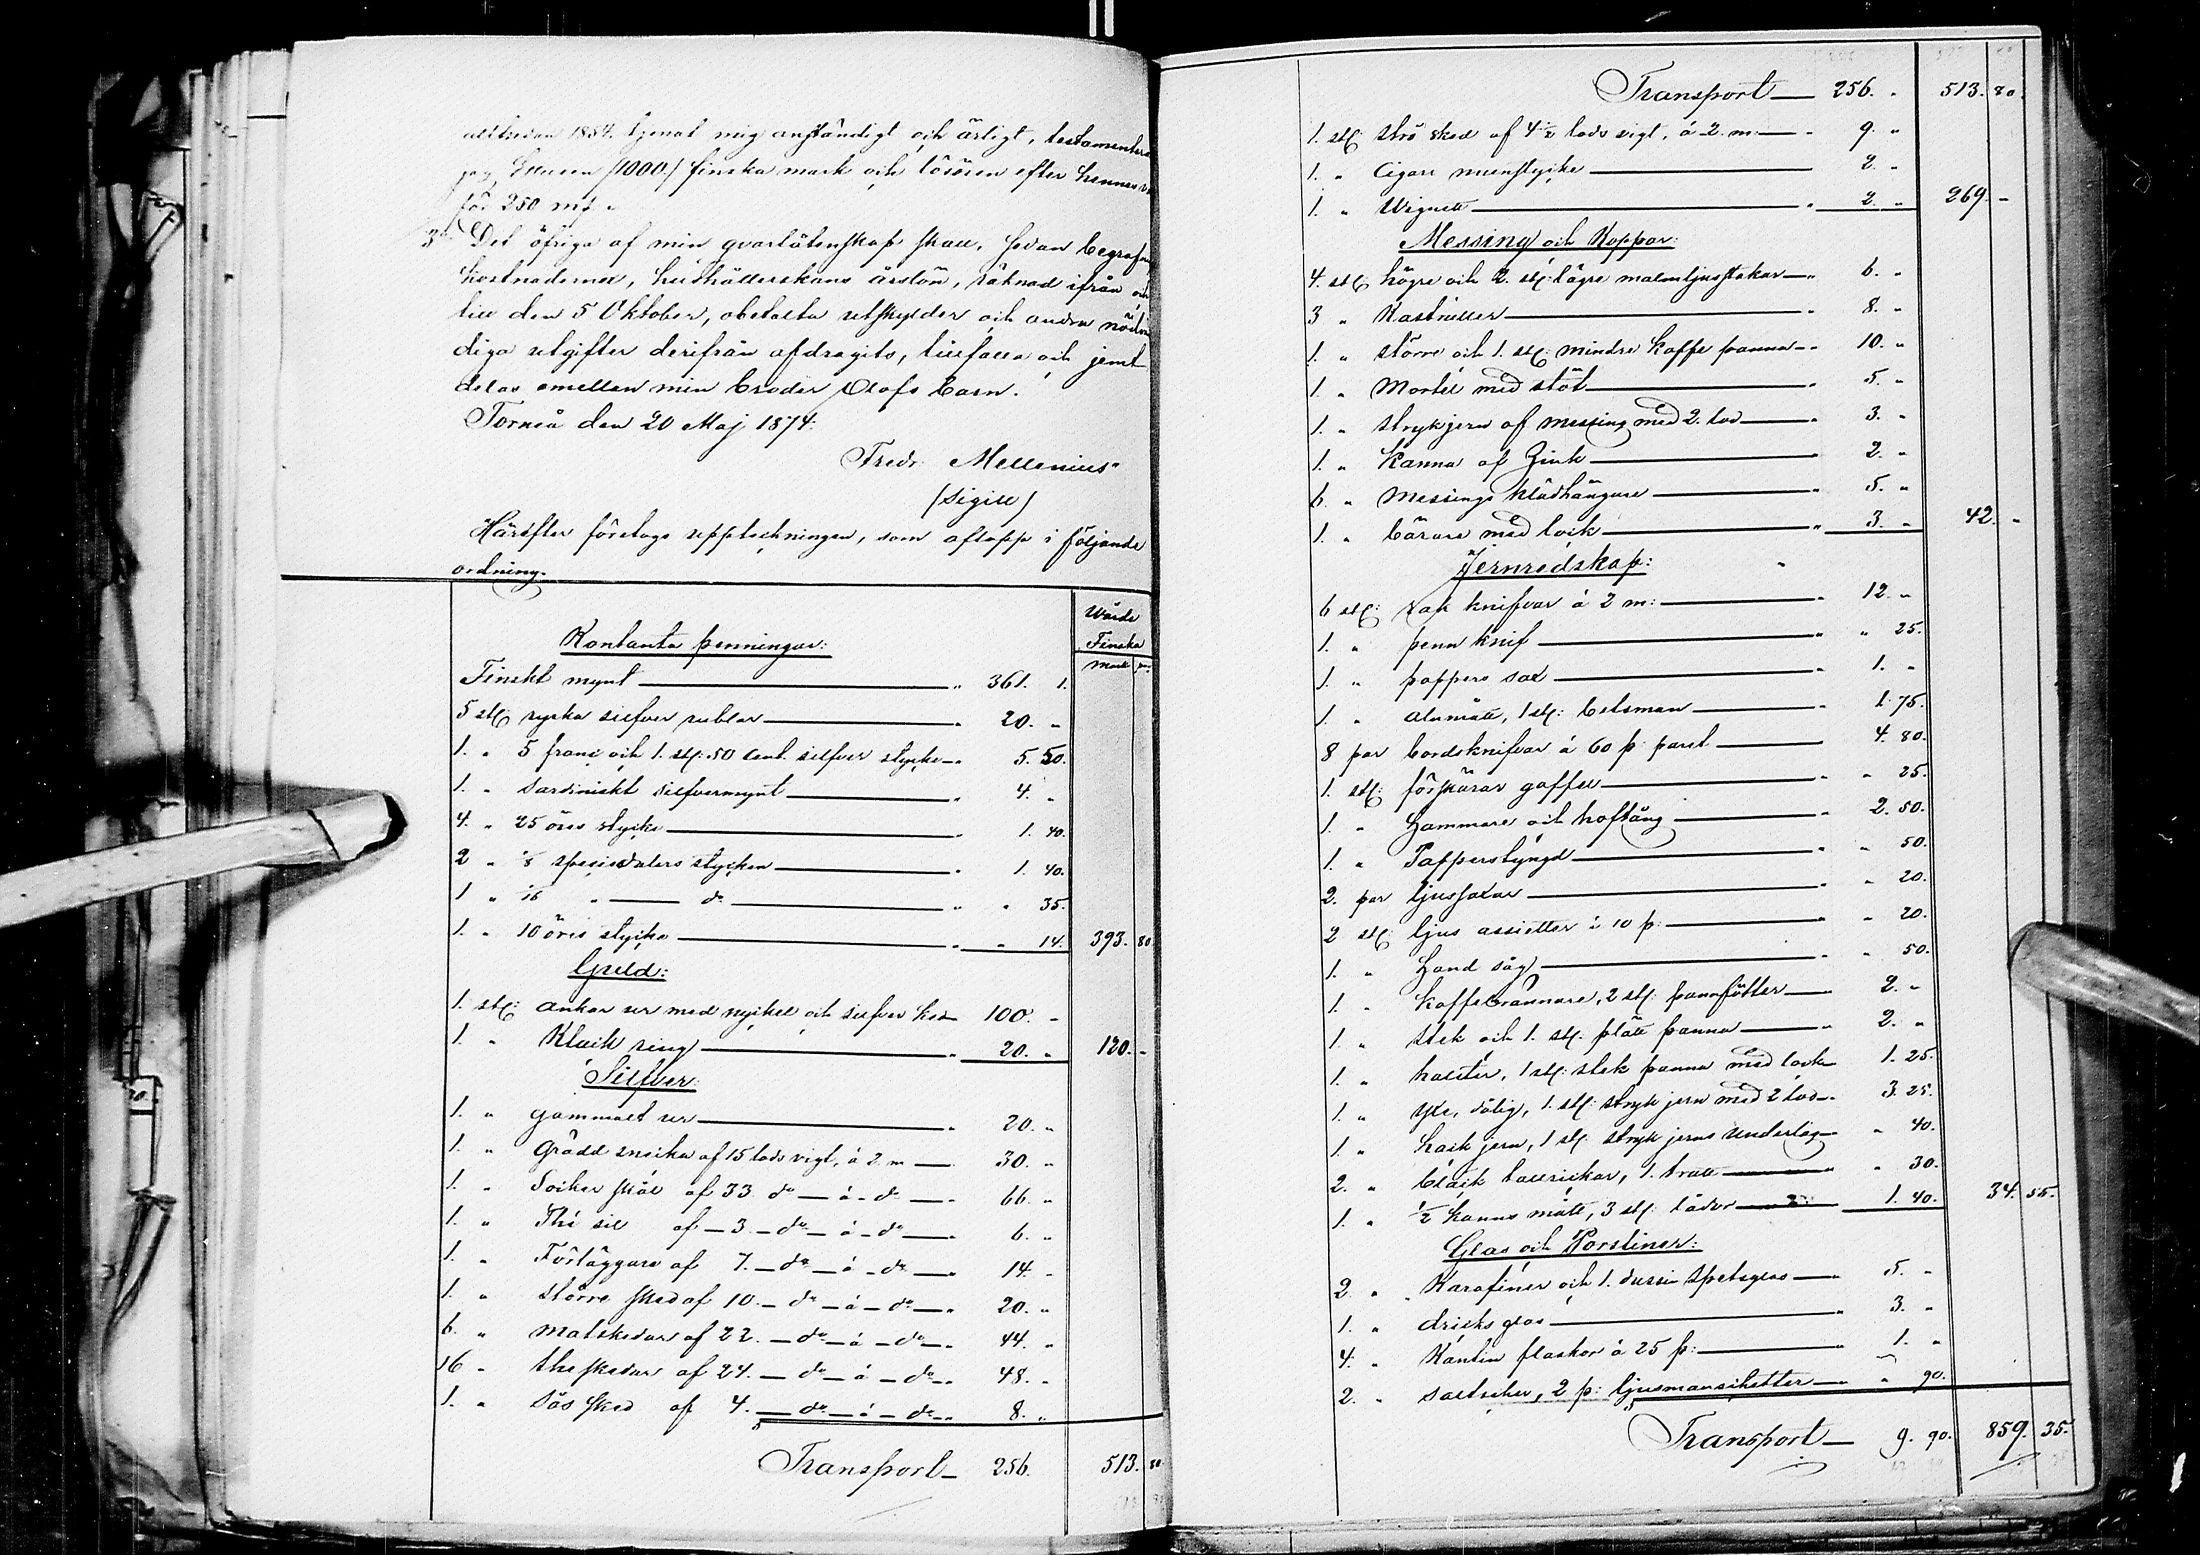 alltsedan 1854 tjenat mig anständigt och ärligt, testamenterar
jag Ettusen (1000) finska mark och lösören efter hennes
för 250 mk.
3o Det öfriga af min qvarlåtenskap skall, sedan begrafnings
kostnaderna, hushållerskans årslön, räknad ifrån och
till den 5 Oktober, obetalta utskylder och andra nödvän
diga utgifter derifrån afdragits, tillfalla och jemt
delas emellan min broder Olofs barn.
Torneå den 20 Maj 1874.
Fredr. Mellenius
(Sigill)
Härefter företogs uppteckningen, som aflopp i följande
ordning.
Wärde
Finska
mark pi.
Kontanta penningar:
Finskt mynt " 361. 1.
5 st: ryska silfver rublar " 20. "
1. " 5 franc och 1. st: 50 Cent. silfver stycke " 5. 50.
1. " Sardiniskt silfvermynt " 4. "
4. " 25 öres stycke " 1. 40.
2 " 1/8 speciedalers stycken " 1. 40.
1 " 1/16 " do " " 35.
1. " 10 öres stycke " " 14. 393. 80
Guld:
1. st: ankar ur med nyckel och silfver ked 100. "
1. " Klack ring " 20. " 120. "
Silfver:
1. " gammalt ur " 20. "
1. " Grädd snicka af 15 lods vigt, á 2 m 30. "
1. " Socker skål af 33 do á do " 66. "
1. " Thé sil af 3 do á do " 6. "
1. " Förläggare af 7. do á do " 14. "
1. " större sked af 10. do á do " 20. "
6. " matskedar af 22. do á do " 44. "
16 " theskedar af 24. do á do " 48. "
1. " sås sked af 4. do á do " 8. "
Transport 256. 513. 80
Transport 256. " 513. 80.
1. st: strö sked af 4 1/2 lods vigt, á 2 m. " 9. "
1. " Cigarr munstycke 2. "
1. " Wignett " 2. " 269. "
Messing och Koppar:
4. st: högre och 2. st: lägre malmljusstakar " 6. "
3 " Kastruller " 8. "
1. " större och 1. st: mindre kaffe panna " 10. "
1. " Mortel med stöt " 5. "
1. " strykjern af messing med 2. lod " 3. "
1. " Kanna af Zink " 2. "
6 " Messings klädhängare " 5. "
1. " bärare med lock " 3. " 42. "
Jernredskap:
6 st: rak knifvar á 2 m: " 12. "
1. " penn knif " " 25.
1. " pappers sax " 1. "
1. " alnmått, 1 st: betsman " 1. 75.
8 par bordsknifvar á 60 p: paret " 4. 80.
1. st: förskärar gaffel " " 25.
1. " hammare och hoftång " 2. 50.
1. " Papperstyngd " " 50.
2. par ljussaxar " " 20.
2 st: ljus assietter á 10 p: " " 20.
1. " hand såg " " 50.
1. " Kaffebrännare, 2 st: pannfötter " 2. "
1 " stek och 1. st: plätt panna " 2. "
1. " halster, 1 st: stek panna med lock 1. 25.
1. " yxe, dålig, 1. st: strykjern med 2 lod " 3. 25.
1. " hack jern, 1 st. stryk jerns underlag " 40.
2. " bläck tallrickar, 1. tratt " " 30.
1. " 1/2 kanns mått, 3 st: lådor 1. 40. 34. 55.
Glas och Porsliner:
2 " Karafiner och 1. dussin spetsglas " 5. "
1. " dricks glas " 3. "
4. " Kantin flaskor á 25 p: " 1. "
2. " saltseker, 2 p: ljusmanschetter " " 90.
Transport 9. 90. 859. 35.